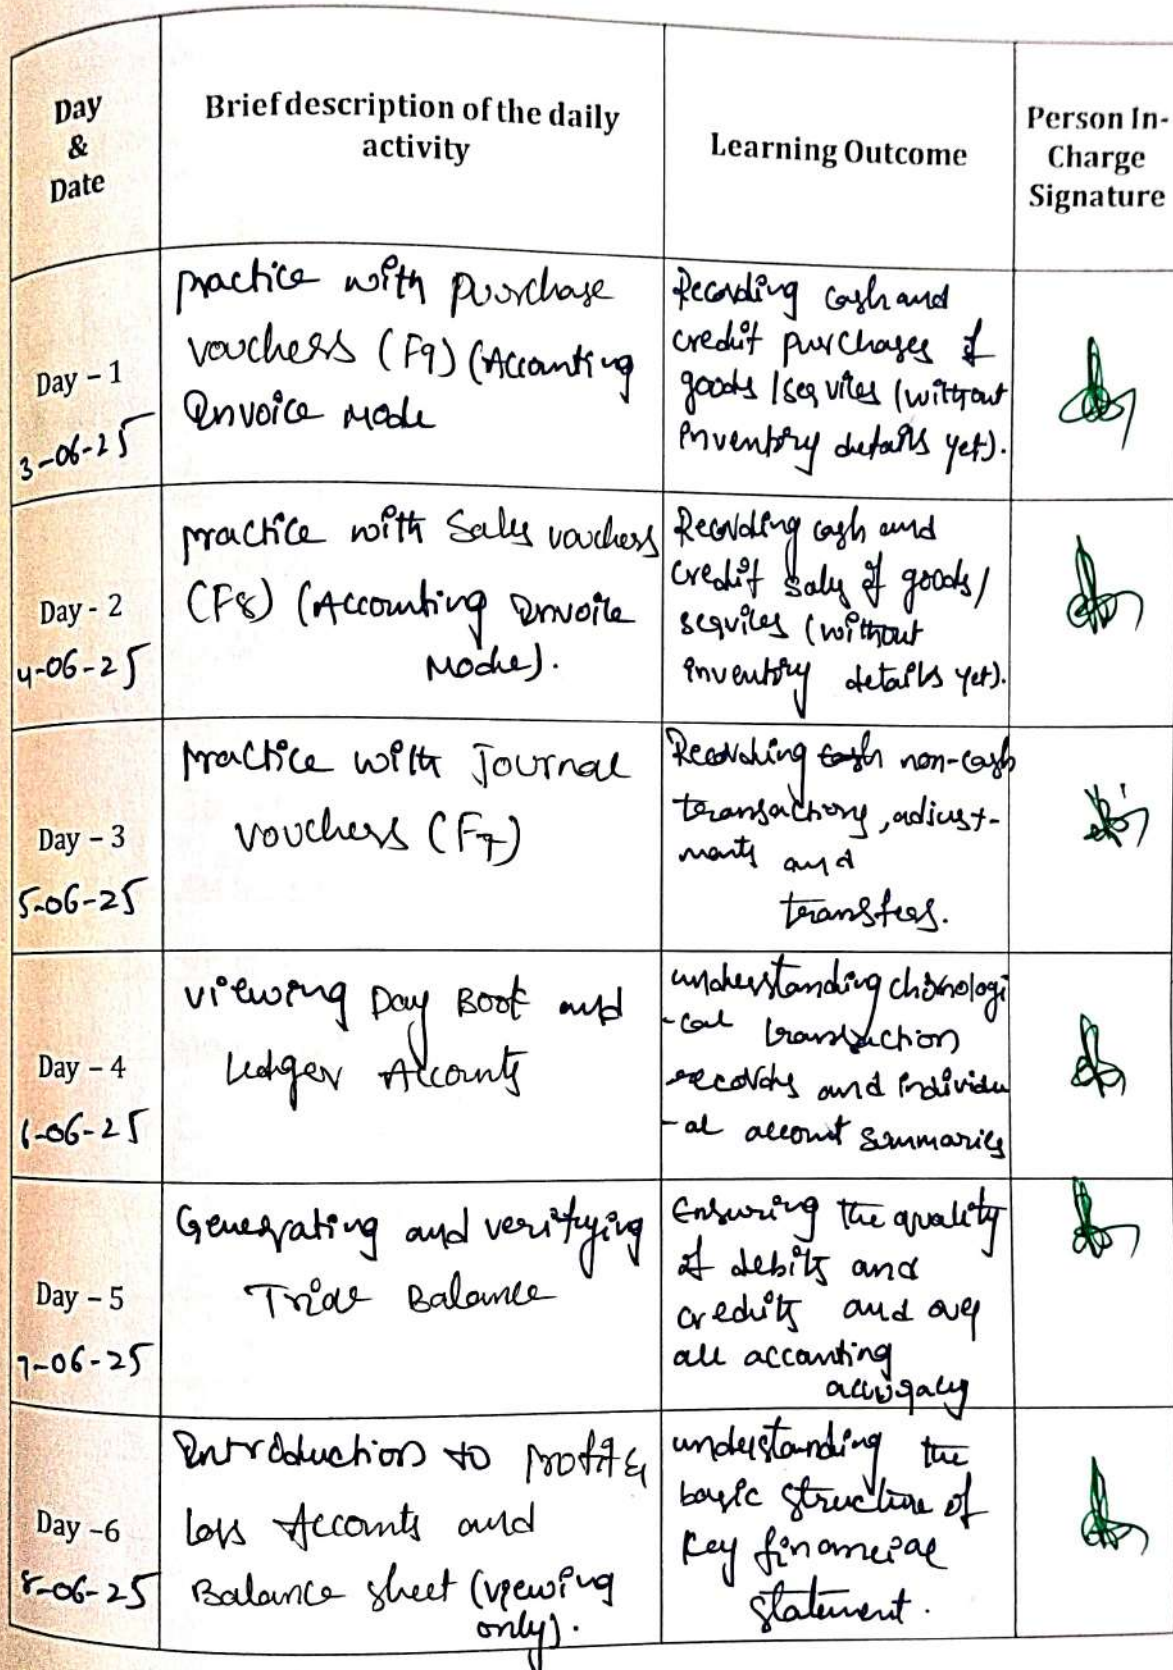 Day
&
Date
Brief description of the daily
activity
Learning Outcome
Person In-
Charge
Signature
Day - 1
3-06-25
practice with purchase
vouchers (F9) (Accounting
Invoice Mode
Recording cash and
credit purchases of
goods / services (without
inventory details yet).
Day - 2
4-06-25
practice with Sales vouchers
(F8) (Accounting Invoice
Mode).
Recording cash and
credit sales of goods/
services (without
inventory details yet).
Day - 3
5-06-25
practice with Journal
vouchers (F7)
Recording cash non-cash
transactions, adjust-
ments and
transfers.
Day - 4
6-06-25
viewing Day Book and
Ledger Accounts
understanding chronologi
-cal transaction
records and individu
-al account summaries
Day - 5
7-06-25
Generating and verifying
Trial Balance
Ensuring the quality
of debits and
credits and over
all accounting
accuracy
Day -6
8-06-25
Introduction to profit &
loss Accounts and
Balance sheet (viewing
only).
understanding the
basic structure of
key financial
statement.